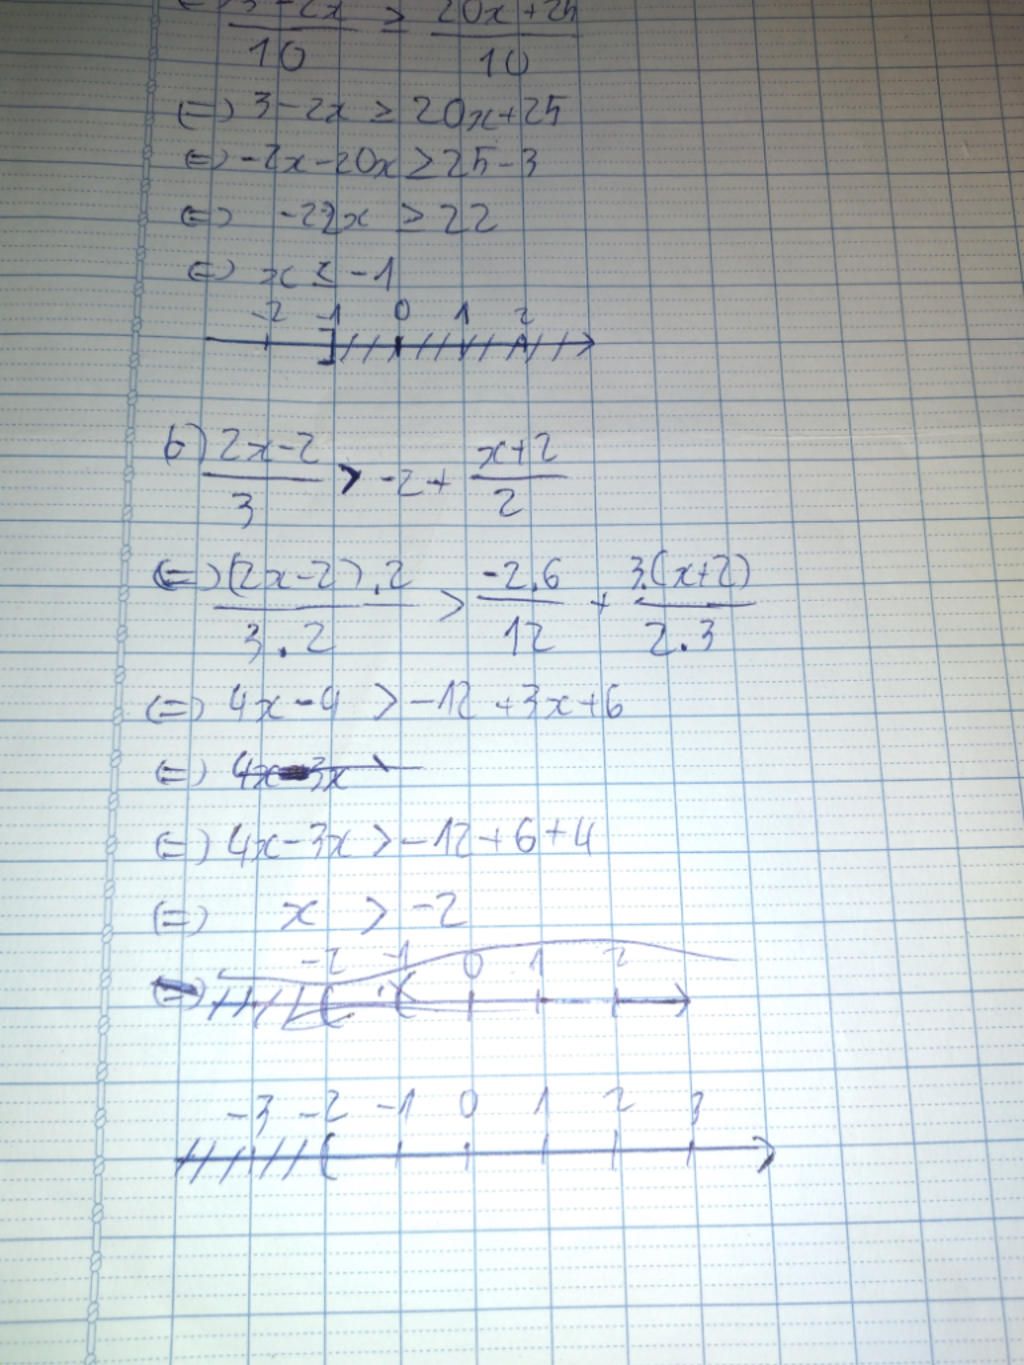 (=) (3-2x)/10 ≥ (20x+25)/10
(=) 3-2x ≥ 20x+25
(=) -2x-20x ≥ 25-3
(=) -22x ≥ 22
(=) x ≤ -1
-2 -1 0 1 2
b) (2x-2)/3 > -2 + (x+2)/2
(=) ((2x-2).2)/(3.2) > (-2.6)/12 + (3.(x+2))/(2.3)
(=) 4x-4 > -12+3x+6
(=) 4x-3x
(=) 4x-3x > -12+6+4
(=) x > -2
-2 -1 0 1 2
(=)
-3 -2 -1 0 1 2 3